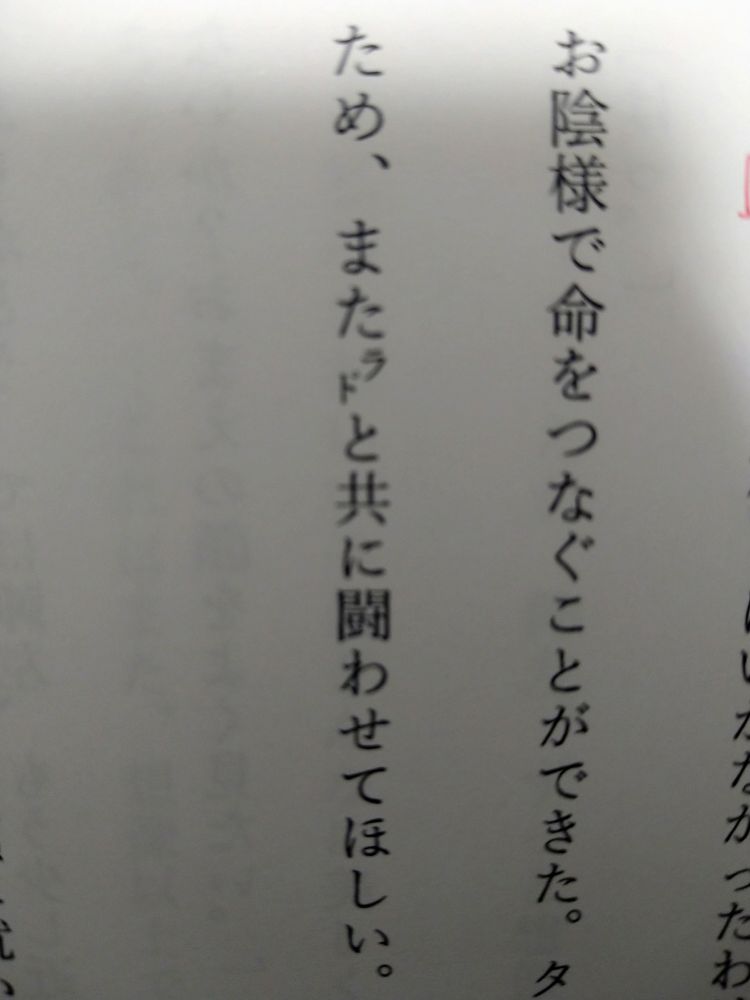 いがなかったわ
お陰様で命をつなぐことができた。タ
ため、またラドと共に闘わせてほしい。